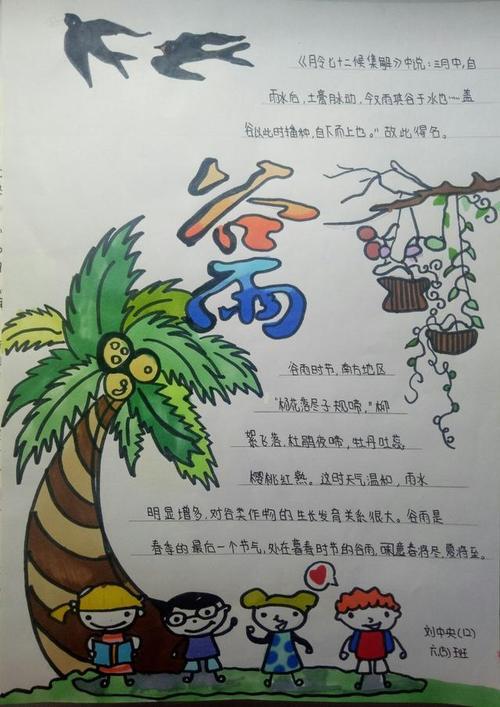 《月令七十二候集解》中说:三月中,自
雨水后,土膏脉动,今又雨其谷于水也……盖
谷以此时播种,自下而上也。”故此得名。
谷
雨
谷雨时节,南方地区
“杨花落尽子规啼,”柳
絮飞落,杜鹃夜啼,牡丹吐蕊
樱桃红熟。这时天气温和,雨水
明显增多,对谷类作物的生长发育关系很大。谷雨是
春季的最后一个节气,处在暮春时节的谷雨,寓意春将尽,夏将至。
刘中央(12)
六(5)班